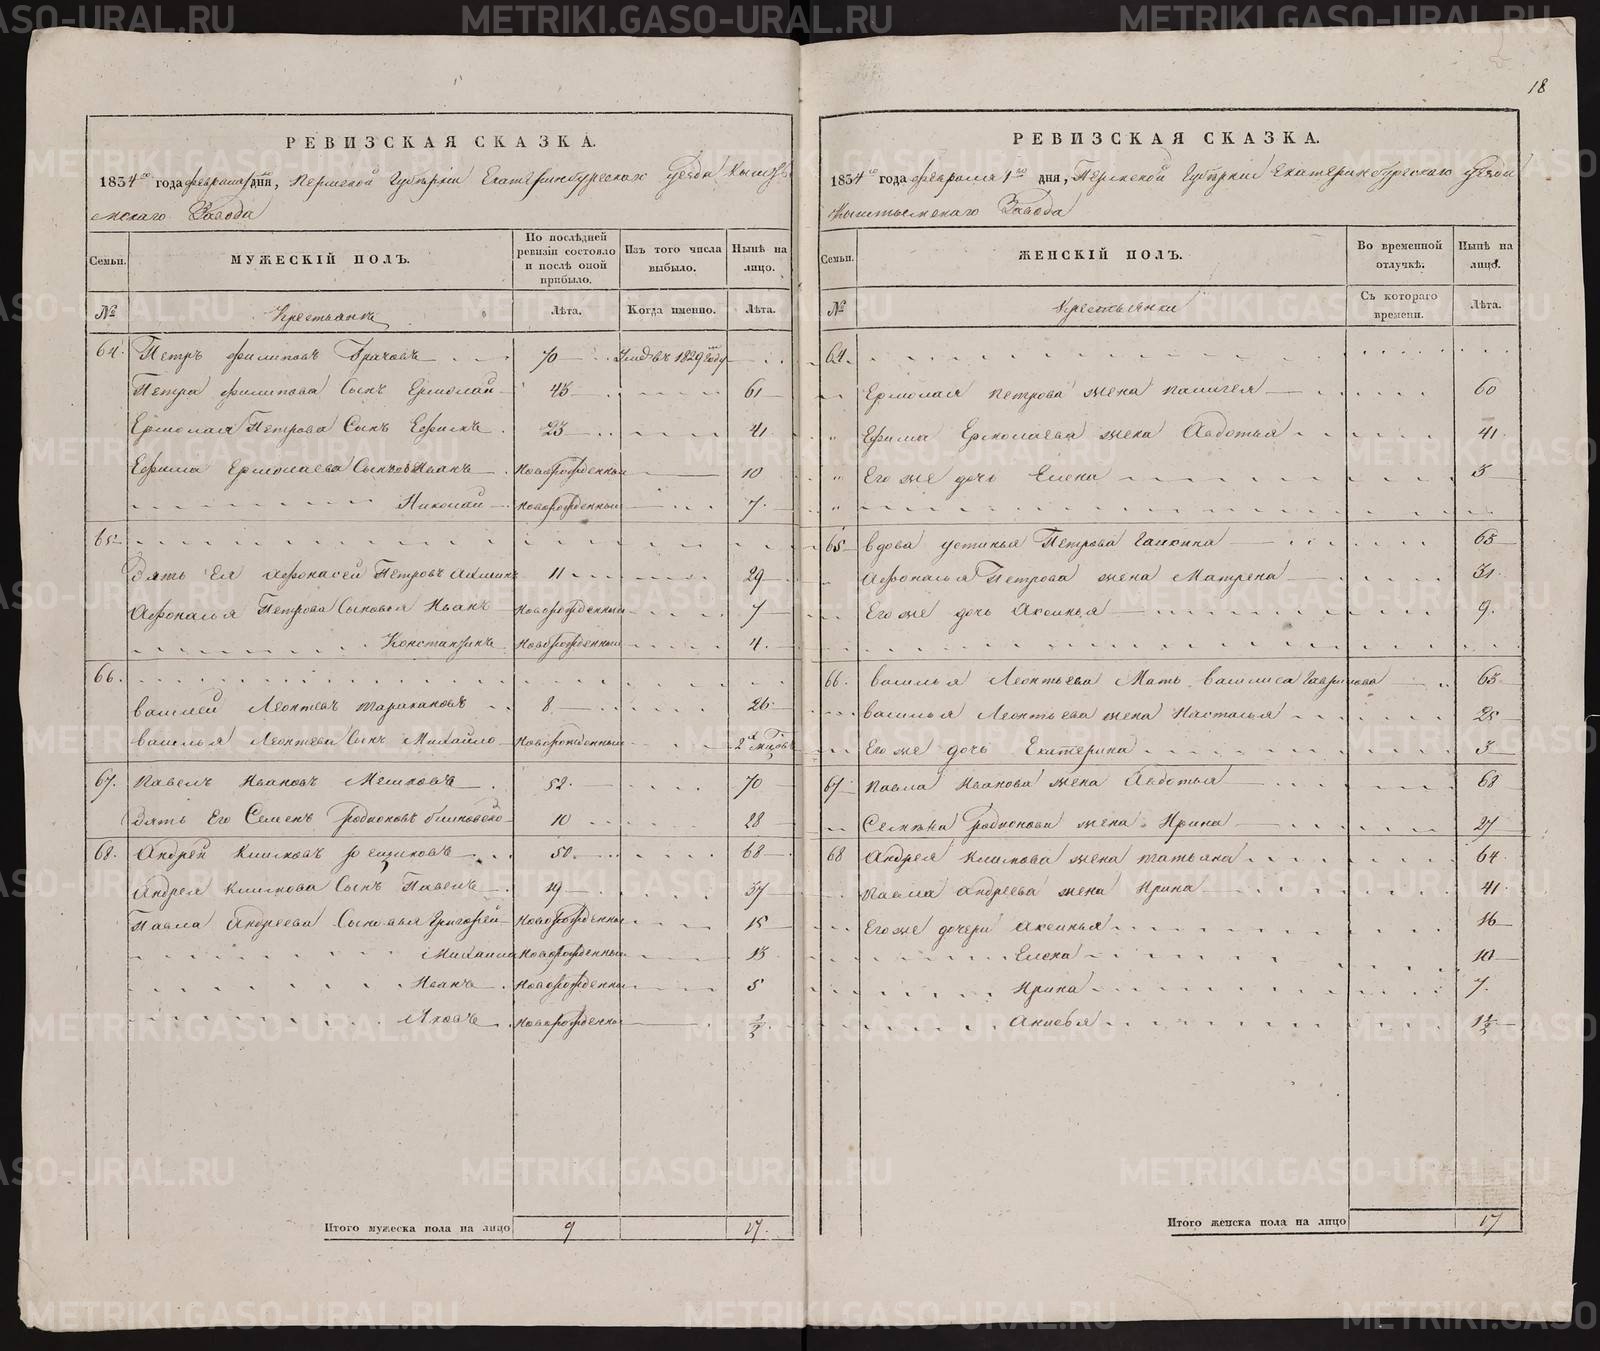 18
РЕВИЗСКАЯ СКАЗКА.
1834го года февраля 1го дня, Пермской Губернии Екатеринбургскаго уезда Кышты-
мскаго Завода
Семьи. МУЖЕСКІЙ ПОЛЪ. По послѣдней ревизіи состояло и послѣ оной прибыло. Изъ того числа выбыло. Нынѣ на лицо.
№ Крестьянъ Лѣта. Когда именно. Лѣта.
64. Петръ Филиповъ 70 Умр въ 1829 году
Петра Филипова Сынъ Ермолай 43 61
Ермолая Петрова Сынъ Ефимъ 23 41
Ефима Ермолаева Сынъ Иванъ Новорожденный 10
Николай Новорожденный 7
65
Зять Ея Афонасей Петровъ 11 29
Афонасья Петрова Сыновья Иванъ Новорожденный 7
Константинъ Новорожденный 4
66.
Василей Леонтевъ Таракановъ 8 26
Василья Леонтева Сынъ Михайло Новорожденный 2х мцовъ
67. Павелъ Ивановъ Мешковъ 52 70
Зять Его Семенъ Родионовъ 10 28
68. Андрей Климовъ 50 68
Андрея Климова Сынъ Павелъ 19 37
Павла Андреева Сыновья Григорей Новорожденный 15
Михаила Новорожденный 13
Иванъ Новорожденный 5
Яковъ Новорожденный ½
Итого мужеска пола на лицо 9 17
РЕВИЗСКАЯ СКАЗКА.
1834го года февраля 1го дня, Пермской Губернии Екатеринбургскаго уезда
Кыштымскаго Завода
Семьи. ЖЕНСКІЙ ПОЛЪ. Во временной отлучкѣ. Нынѣ на лицо.
№ Крестьянки Съ котораго времени. Лѣта.
64.
Ермолая Петрова жена Палагея 60
Ефима Ермолаева жена Авдотья 41
Его же дочь Елена 3
65 Вдова Устинья Петрова 63
Афонасья Петрова жена Матрена 31
Его же дочь Аксинья 9
66. Василья Леонтьева Мать Василиса Гаврилова 65
Василья Леонтьева жена Настасья 25
Его же дочь Екатерина 3
67 Павла Иванова жена Авдотья 68
Семена Родионова жена Ирина 27
68 Андрея Климова жена Татьяна 64
Павла Андреева жена Ирина 41
Его же дочери Аксинья 16
Елена 10
Ирина 7
Анисья 1½
Итого женска пола на лицо 17
METRIKI.GASO-URAL.RU